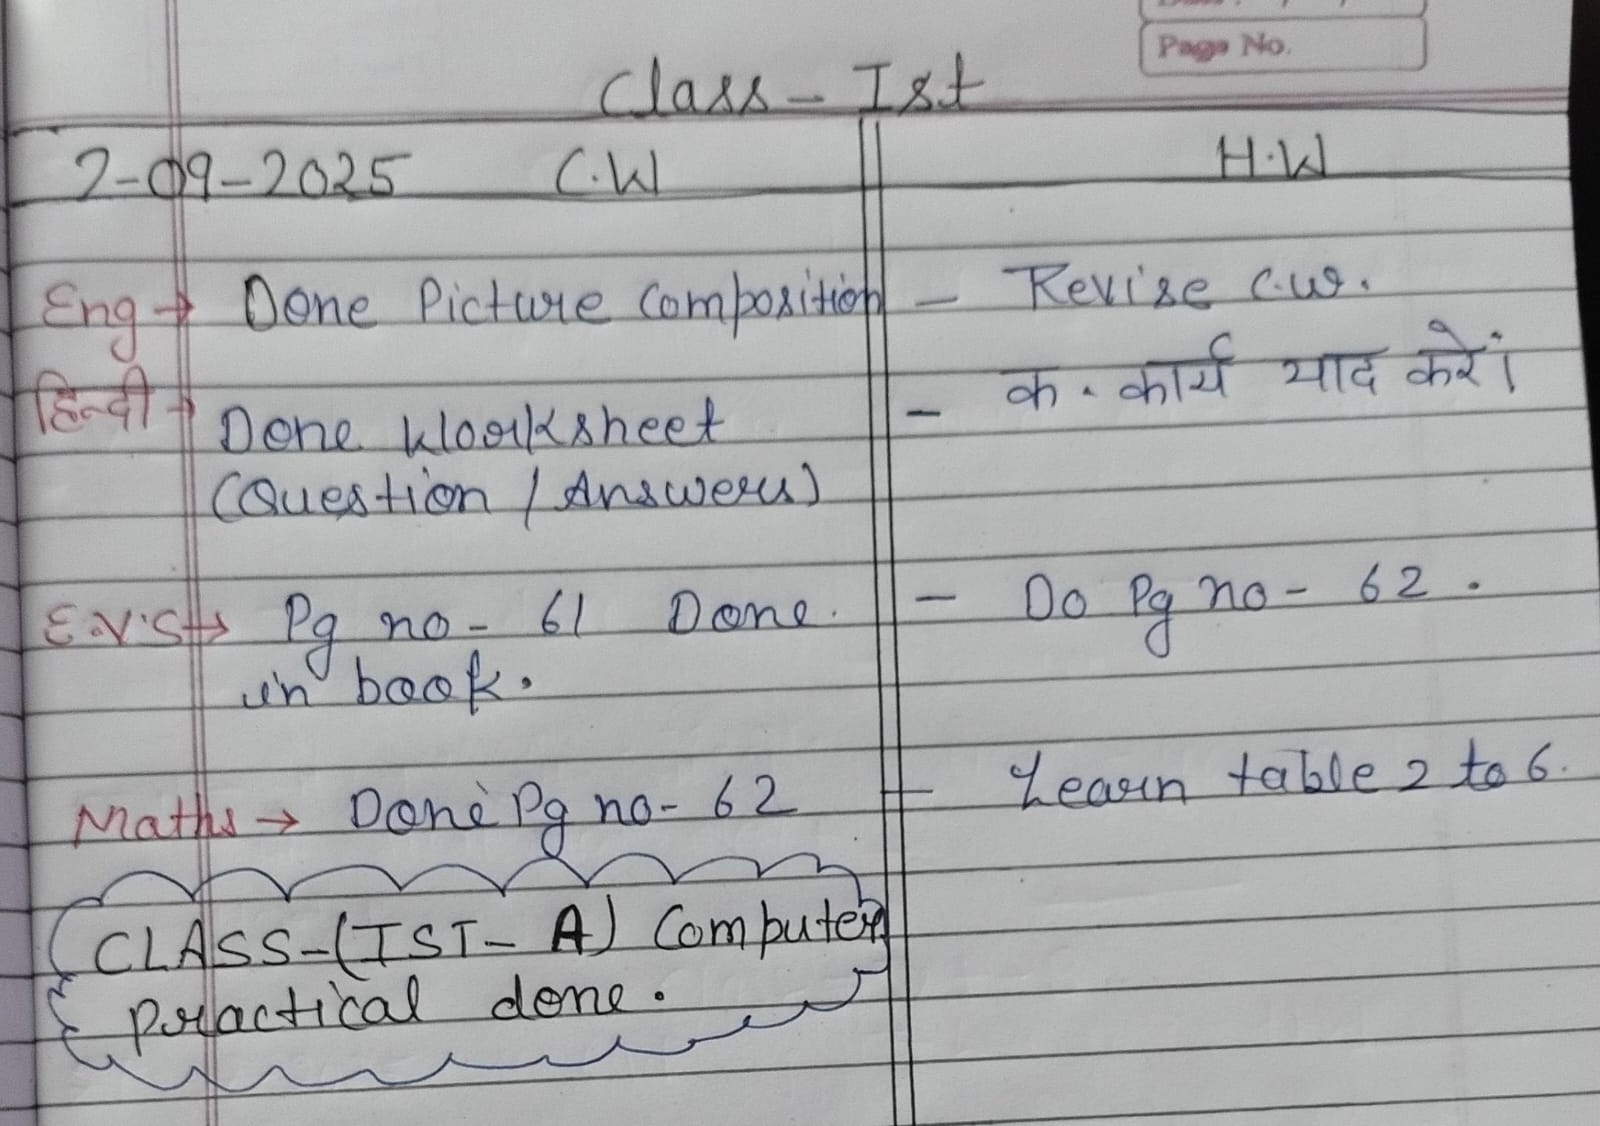 Page No.
Class - Ist
2-09-2025 C.W H.W
Eng → Done Picture Composition - Revise c.w.
हिन्दी → Done Worksheet - क. कार्य याद करें।
(Question / Answers)
E.V.S → Pg no - 61 Done. - Do Pg no - 62.
in book.
Maths → Done Pg no - 62 - Learn table 2 to 6.
CLASS-(IST- A) Computer
practical done.